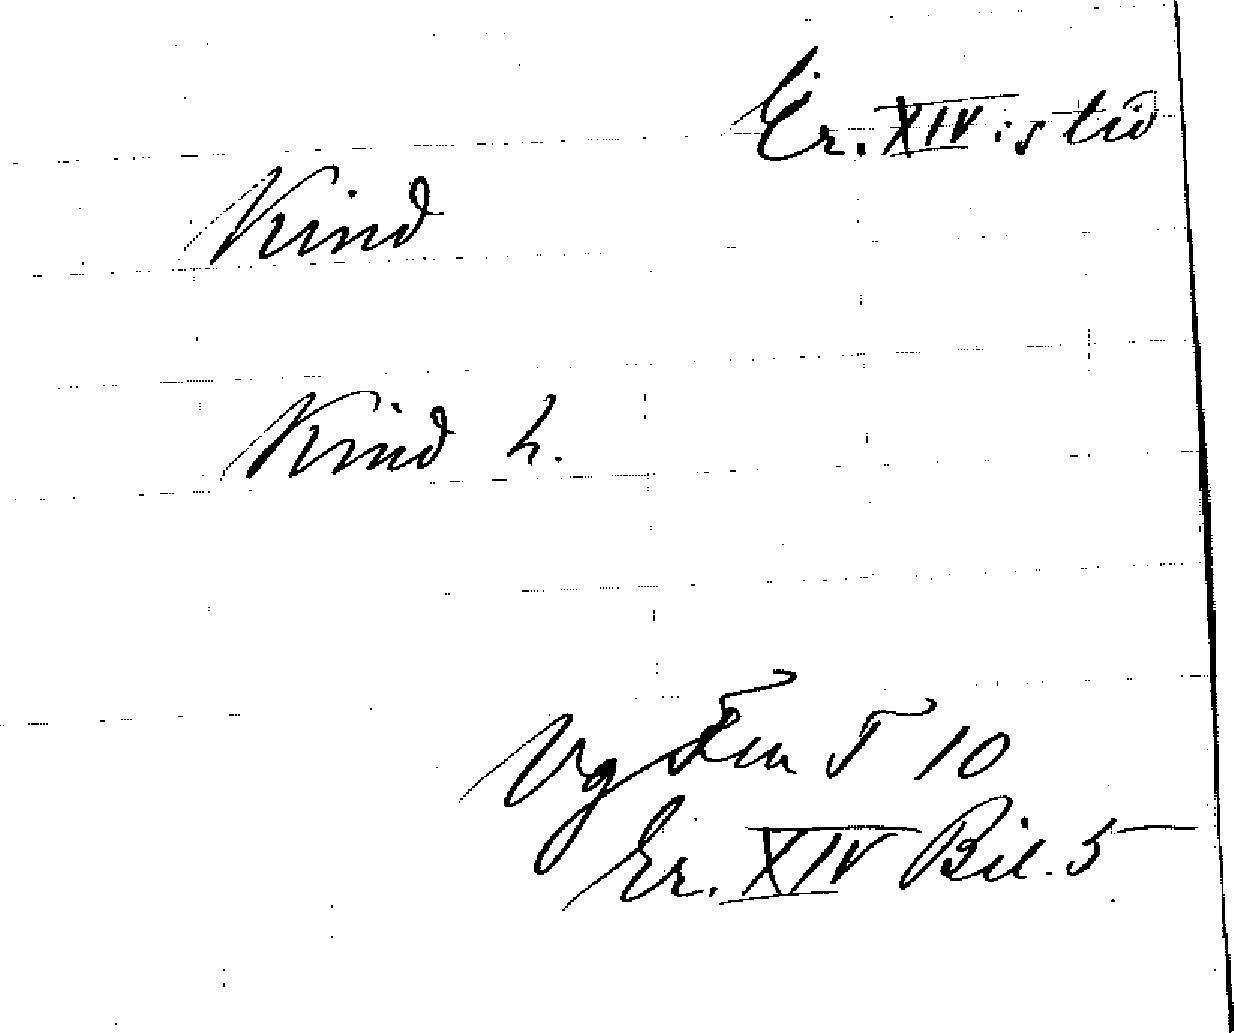 Er. XIV:s tid
Kind
Kind h.
Vg Fru T 10
Er. XIV Bil. 5